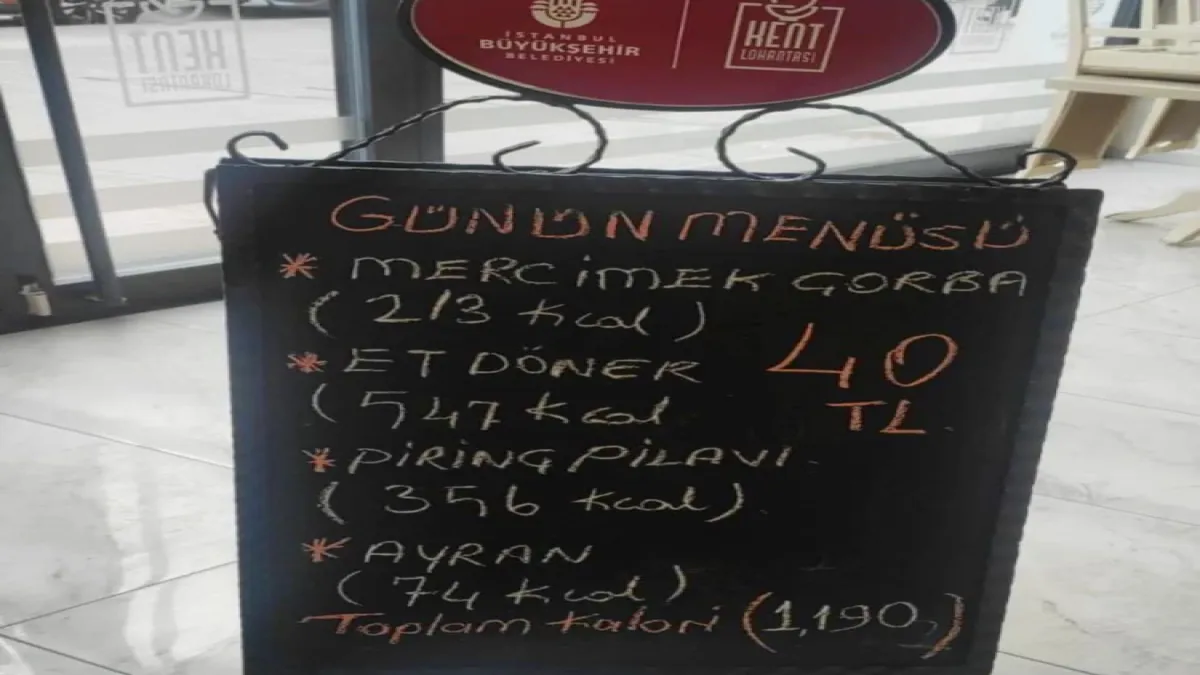 KENT
LOKANTASI
İSTANBUL
BÜYÜKŞEHİR
BELEDİYESİ
KENT
LOKANTASI
GÜNÜN MENÜSÜ
* MERCİMEK ÇORBA
(213 kcal)
* ET DÖNER
(547 kcal
40
TL
* PİRİNÇ PİLAVI
(356 kcal)
* AYRAN
(74 kcal)
Toplam kalori (1,190)